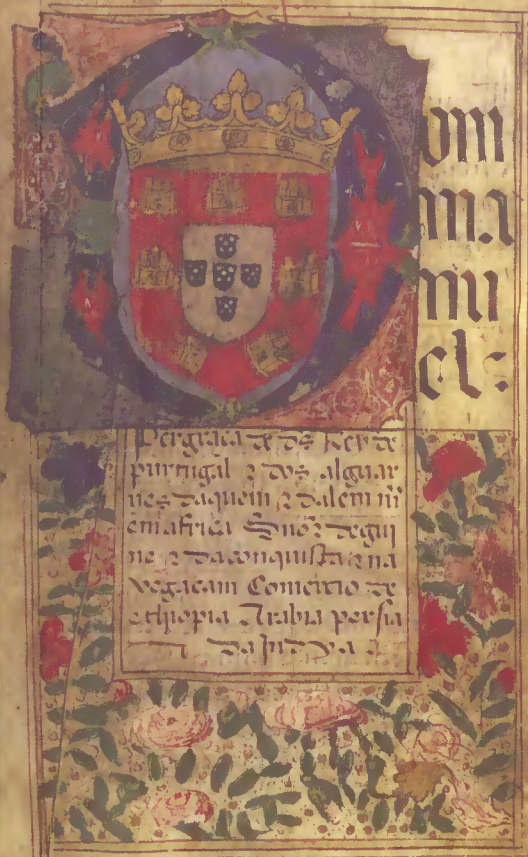 om
ma
nu
el:
Per graca de ds Rey de
purtugal ⁊ dos alguar
ves daquem ⁊ dalem m̃
em africa Snõr de gui
ne ⁊ da conquista ⁊ na
vegacam Comercio de
ethiopia Arabia persia
⁊ da Indya